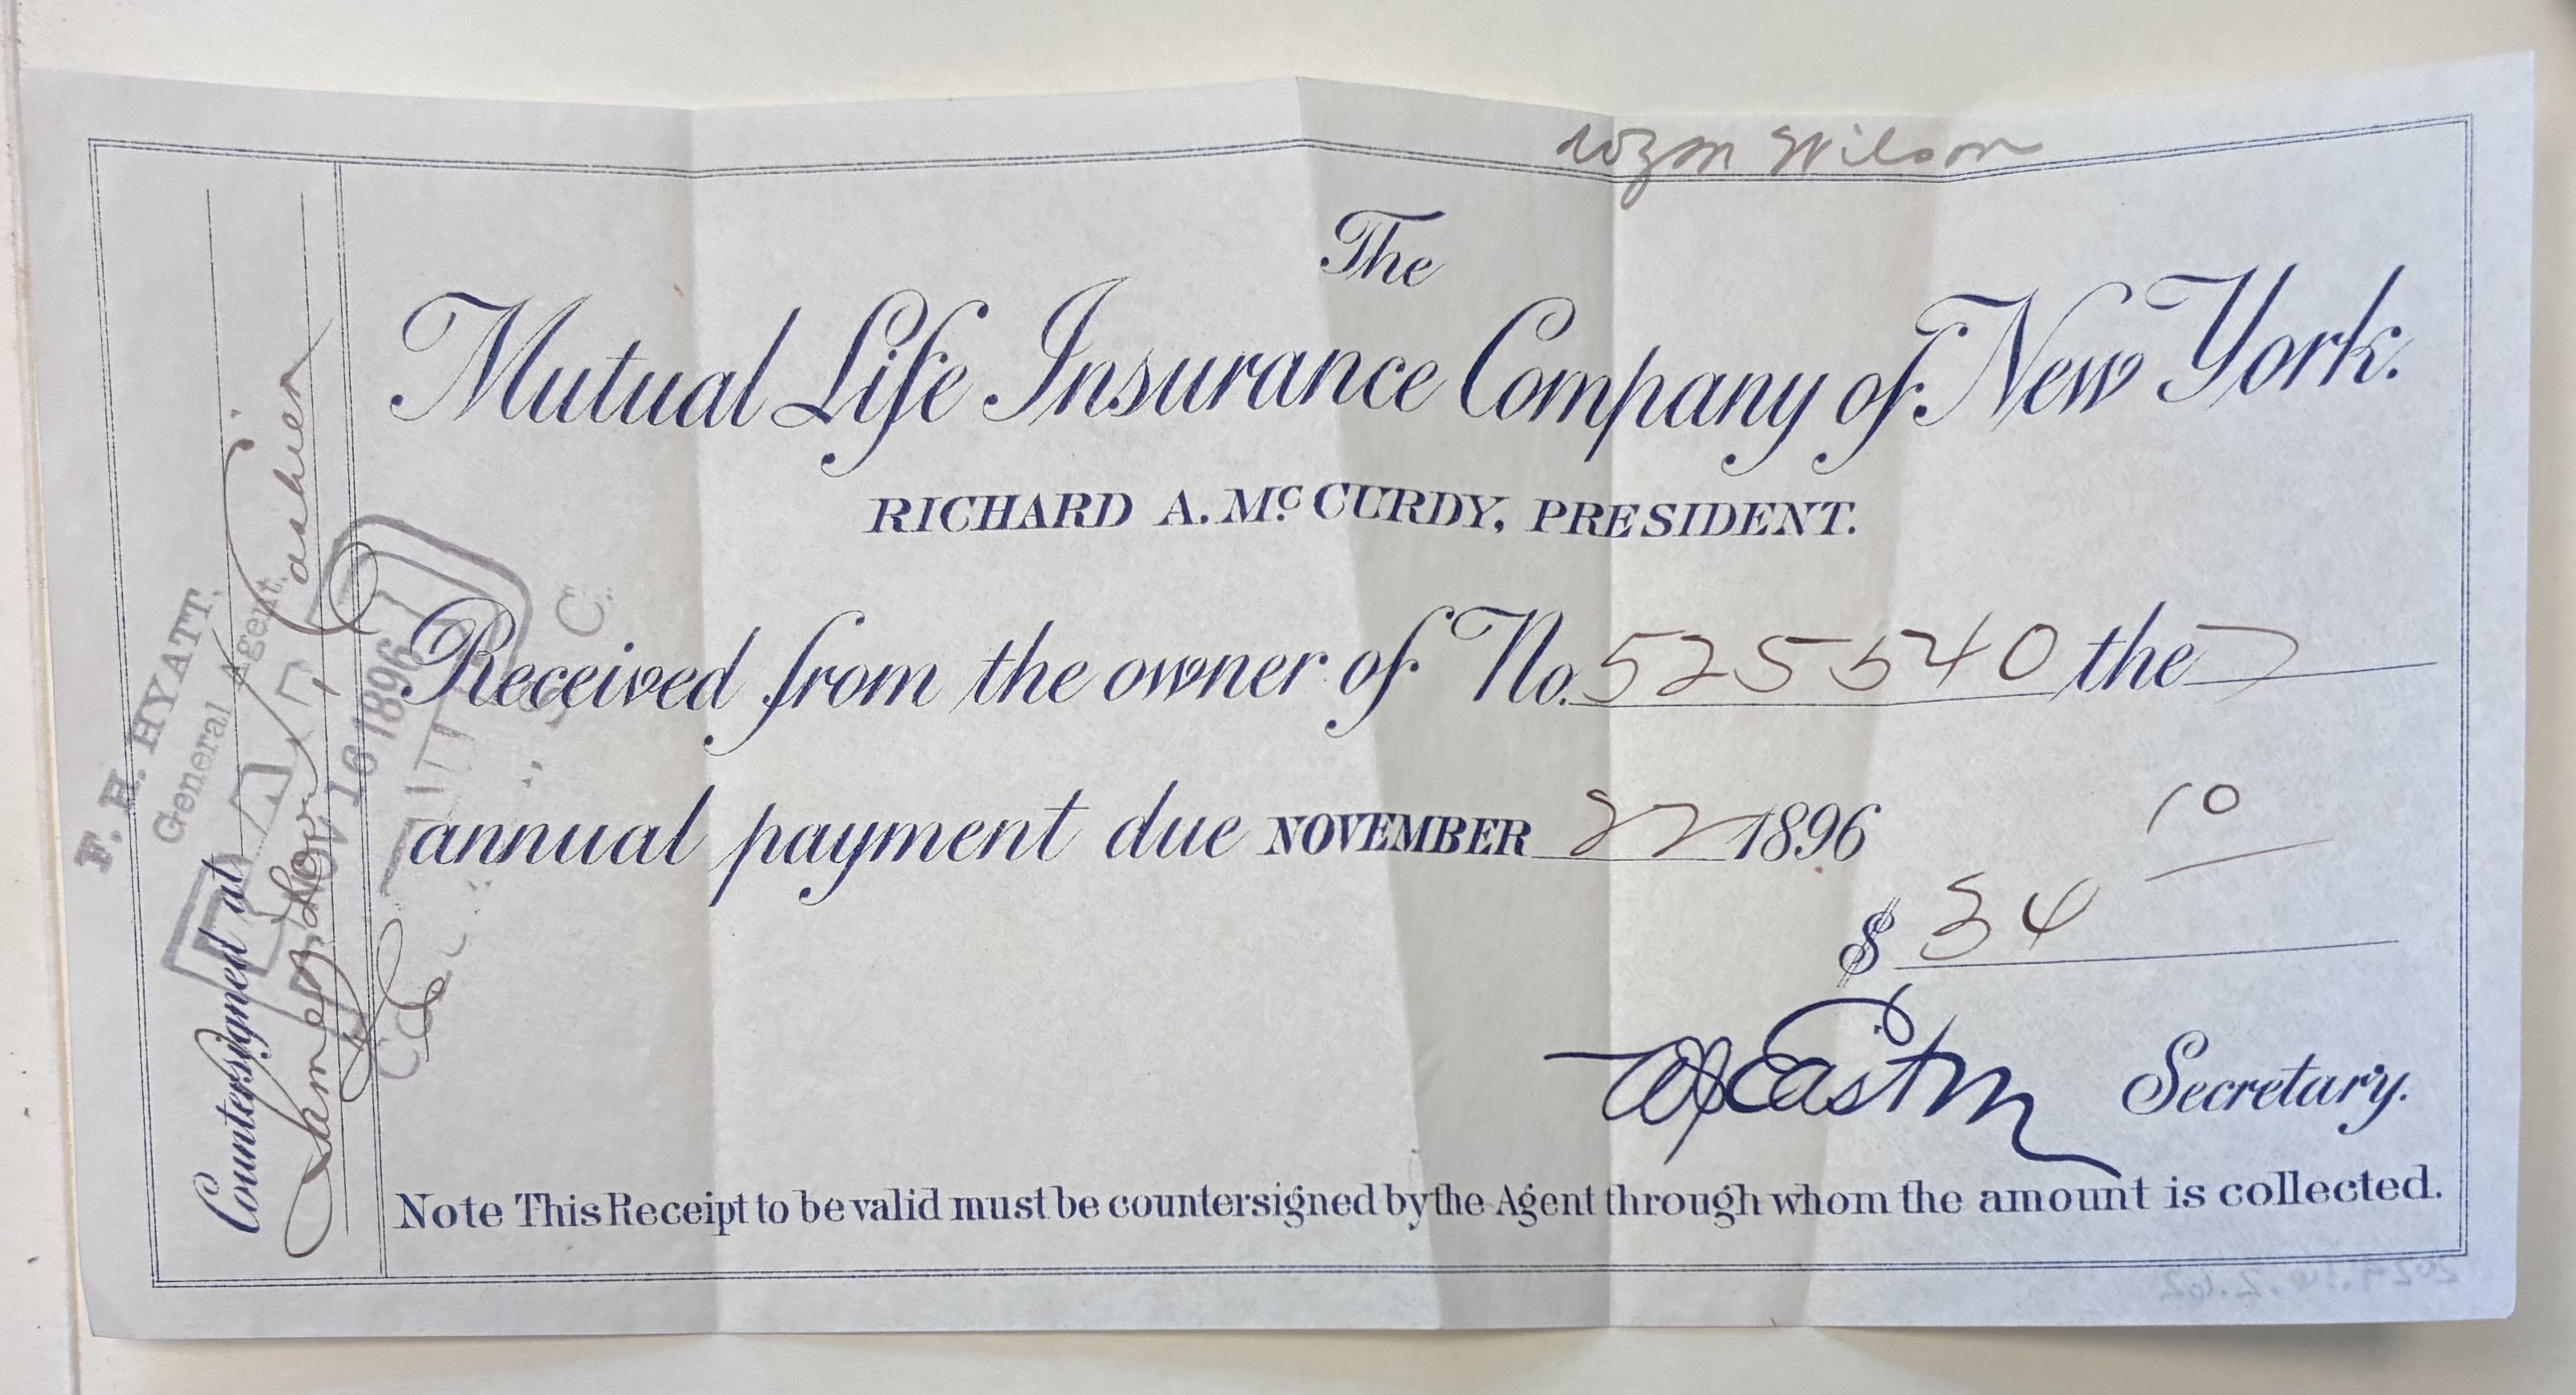 Wilson
The
Mutual Life Insurance Company of New York.
RICHARD A. McCURDY, PRESIDENT.
Received from the owner of No. 525540 the 7
annual payment due NOVEMBER 22 1896
10
$ 34
WJ Easton Secretary.
Note This Receipt to be valid must be countersigned by the Agent through whom the amount is collected.
Countersigned at
Cashier
F. H. HYATT,
General Agent.
PAID
NOV 16 1896
S. C.